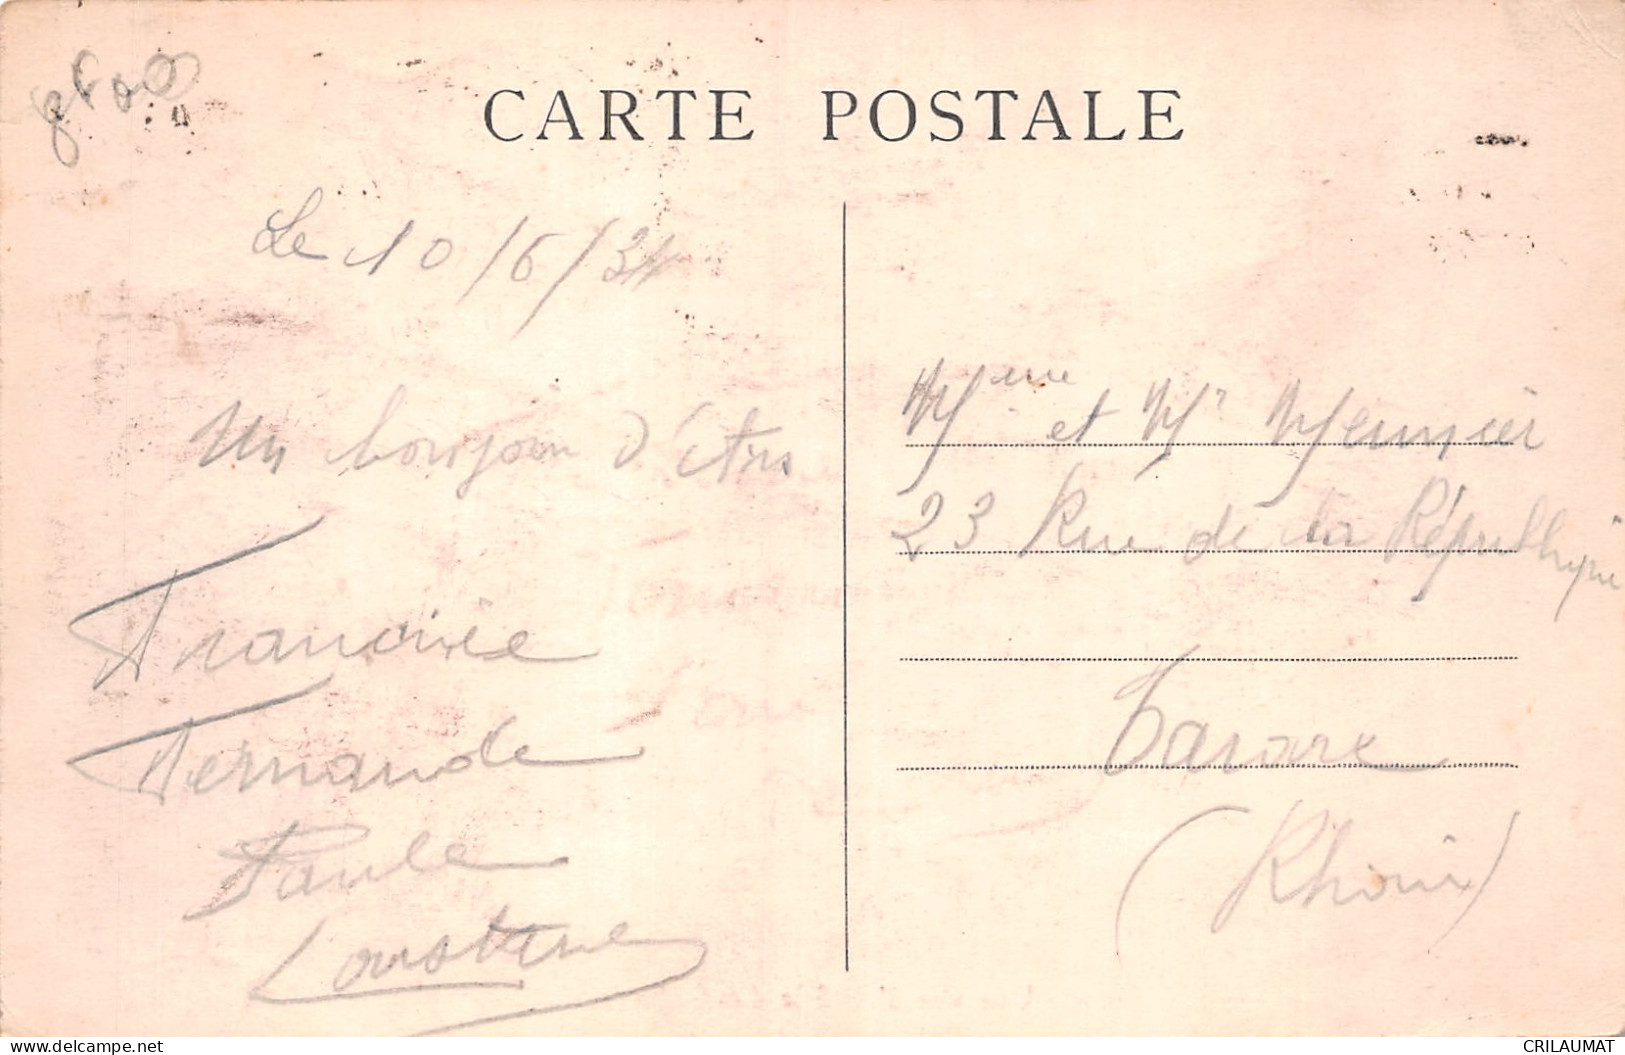 CARTE POSTALE
Le 10/6/31
Un bonjour d'
Mme et Mr Meunier
23 Rue de la République
Francine
Fernande
Tarare
Paule
(Rhône)
www.delcampe.net
CRILAUMAT